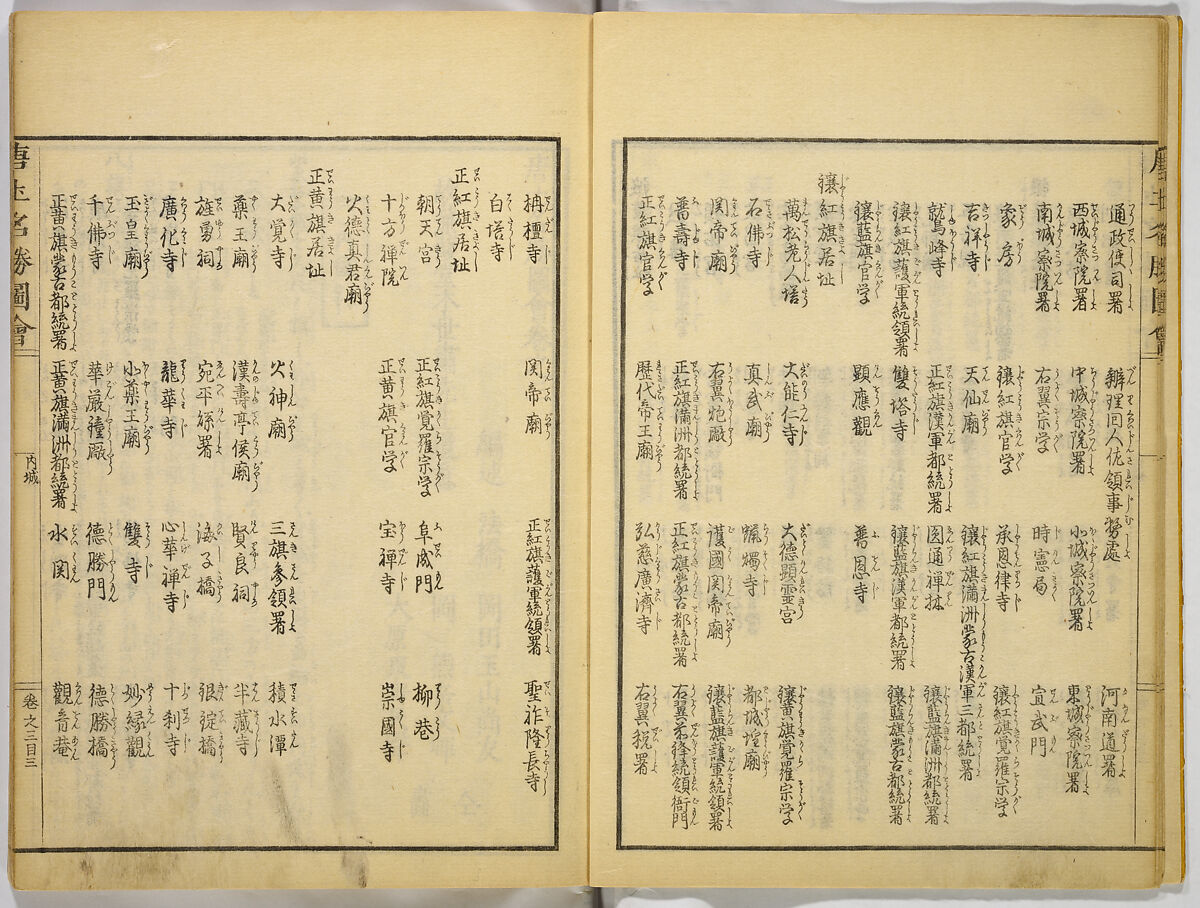 通政使司署 辧理回人佐領事務處 河南道署
西城察院署 中城察院署 北城察院署 東城察院署
南城察院署 右翼宗学 時憲局 宣武門
象房 鑲紅旗官学 承恩律寺 鑲紅旗覺羅宗学
吉祥寺 天仙廟 鑲紅旗満洲蒙古漢軍三都統署
鷲峰寺 正紅旗漢軍都統署 圓通禅林 鑲藍旗満洲都統署
鑲紅旗護軍統領署 雙塔寺 鑲藍旗漢軍都統署 鑲藍旗蒙古都統署
鑲藍旗官学 顕應觀 普恩寺
鑲紅旗居址
萬松老人塔 大能仁寺 大德顕靈宮 鑲黄旗覺羅宗学
石佛寺 真武廟 蠟燭寺 都城隍廟
関帝廟 右翼炮厰 護國関帝廟 鑲藍旗護軍統領署
普壽寺 正紅旗満洲都統署 正紅旗蒙古都統署 右翼前鋒統領衙門
正紅旗官学 歴代帝王廟 弘慈廣濟寺 右翼税署
唐土名勝圖會
栴檀寺 関帝廟 正紅旗護軍統領署 聖祚隆長寺
白塔寺
正紅旗居址
朝天宮 正紅旗覺羅宗学 阜成門 柳巷
十方禅院 正黄旗官学 宝禅寺 崇國寺
火德真君廟
正黄旗居址
大覚寺 火神廟 三旗参領署 積水潭
藥王廟 漢壽亭侯廟 賢良祠 半藏寺
旌勇祠 宛平縣署 海子橋 銀淀橋
廣化寺 龍華寺 心華禅寺 十刹寺
玉皇廟 小藥王廟 雙寺 妙縁觀
千佛寺 華嚴鐘厰 德勝門 德勝橋
正黄旗蒙古都統署 正黄旗満洲都統署 水関 觀音菴
唐土名勝圖會 内城 卷之三目三